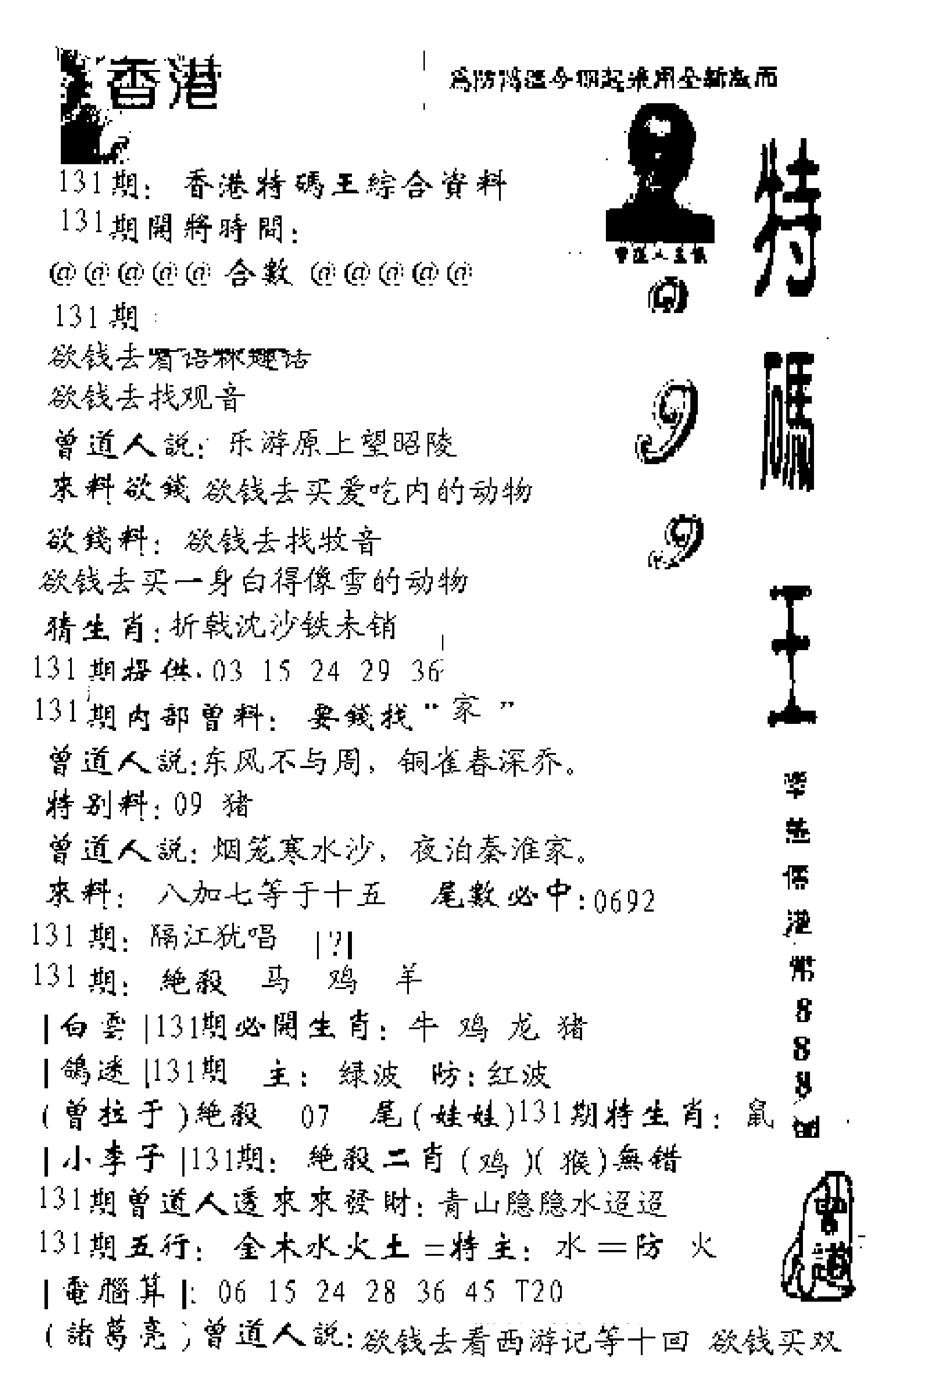 香港
為防
131期：香港特碼王綜合資料
131期開將時間：
@@@@@合數@@@@@
131期：
欲钱去
欲钱去找观音
曾道人説：乐游原上望昭陵
來料欲錢 欲钱去买爱吃内的动物
欲錢料：欲钱去找牧音
欲钱去买一身白得像雪的动物
猜生肖：折戟沈沙铁未销
131期提供．03 15 24 29 36
131期内部曾料：要錢找“家”
曾道人説：东风不与周，铜雀春深乔。
特别料：09 猪
曾道人説：烟笼寒水沙，夜泊秦淮家。
來料：八加七等于十五 尾數必中：0692
131期：隔江犹唱 |?|
131期：絶殺 马 鸡 羊
|白雲|131期必開生肖：牛 鸡 龙 猪
|鴿迷|131期 主：绿波 防：红波
(曾拉于)絶殺 07 尾(娃娃)131期特生肖：鼠
|小李子|131期：絶殺二肖(鸡)(猴)無錯
131期曾道人透來來發財：青山隐隐水迢迢
131期五行：金木水火土=特主：水=防 火
|電腦算|：06 15 24 28 36 45 T20
(諸葛亮)曾道人説：欲钱去看西游记等十回 欲钱买双
特碼王
9
9
港幣888
曾道